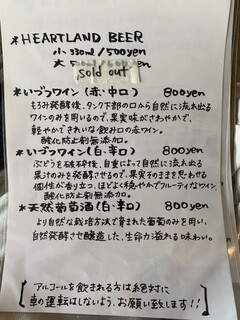 *HEARTLAND BEER
小 330ml / 500yen
大 5
sold out
*いづつワイン(赤・中口) 800yen
もろみ発酵後、タンク下部の口から自然に流れ出る
ワインのみを用いるので、果実味がさわやかで、
軽やかできれいな飲み口の赤ワイン。
酸化防止剤無添加。
*いづつワイン(白・辛口) 800yen
ぶどうを破砕後、自重によって自然に流れ出る
果汁のみを発酵させるので、果実そのままを思わせる
個性が香り立つ、ほどよく穏やかでフルーティなワイン。
酸化防止剤無添加。
*天然葡萄酒(白・辛口) 800yen
より自然な栽培方法で育まれた葡萄のみを用い、
自然発酵させ醸造した、生命力溢れる味わい。
アルコールを飲まれる方は絶対に
車の運転はしないよう、お願い致します!!